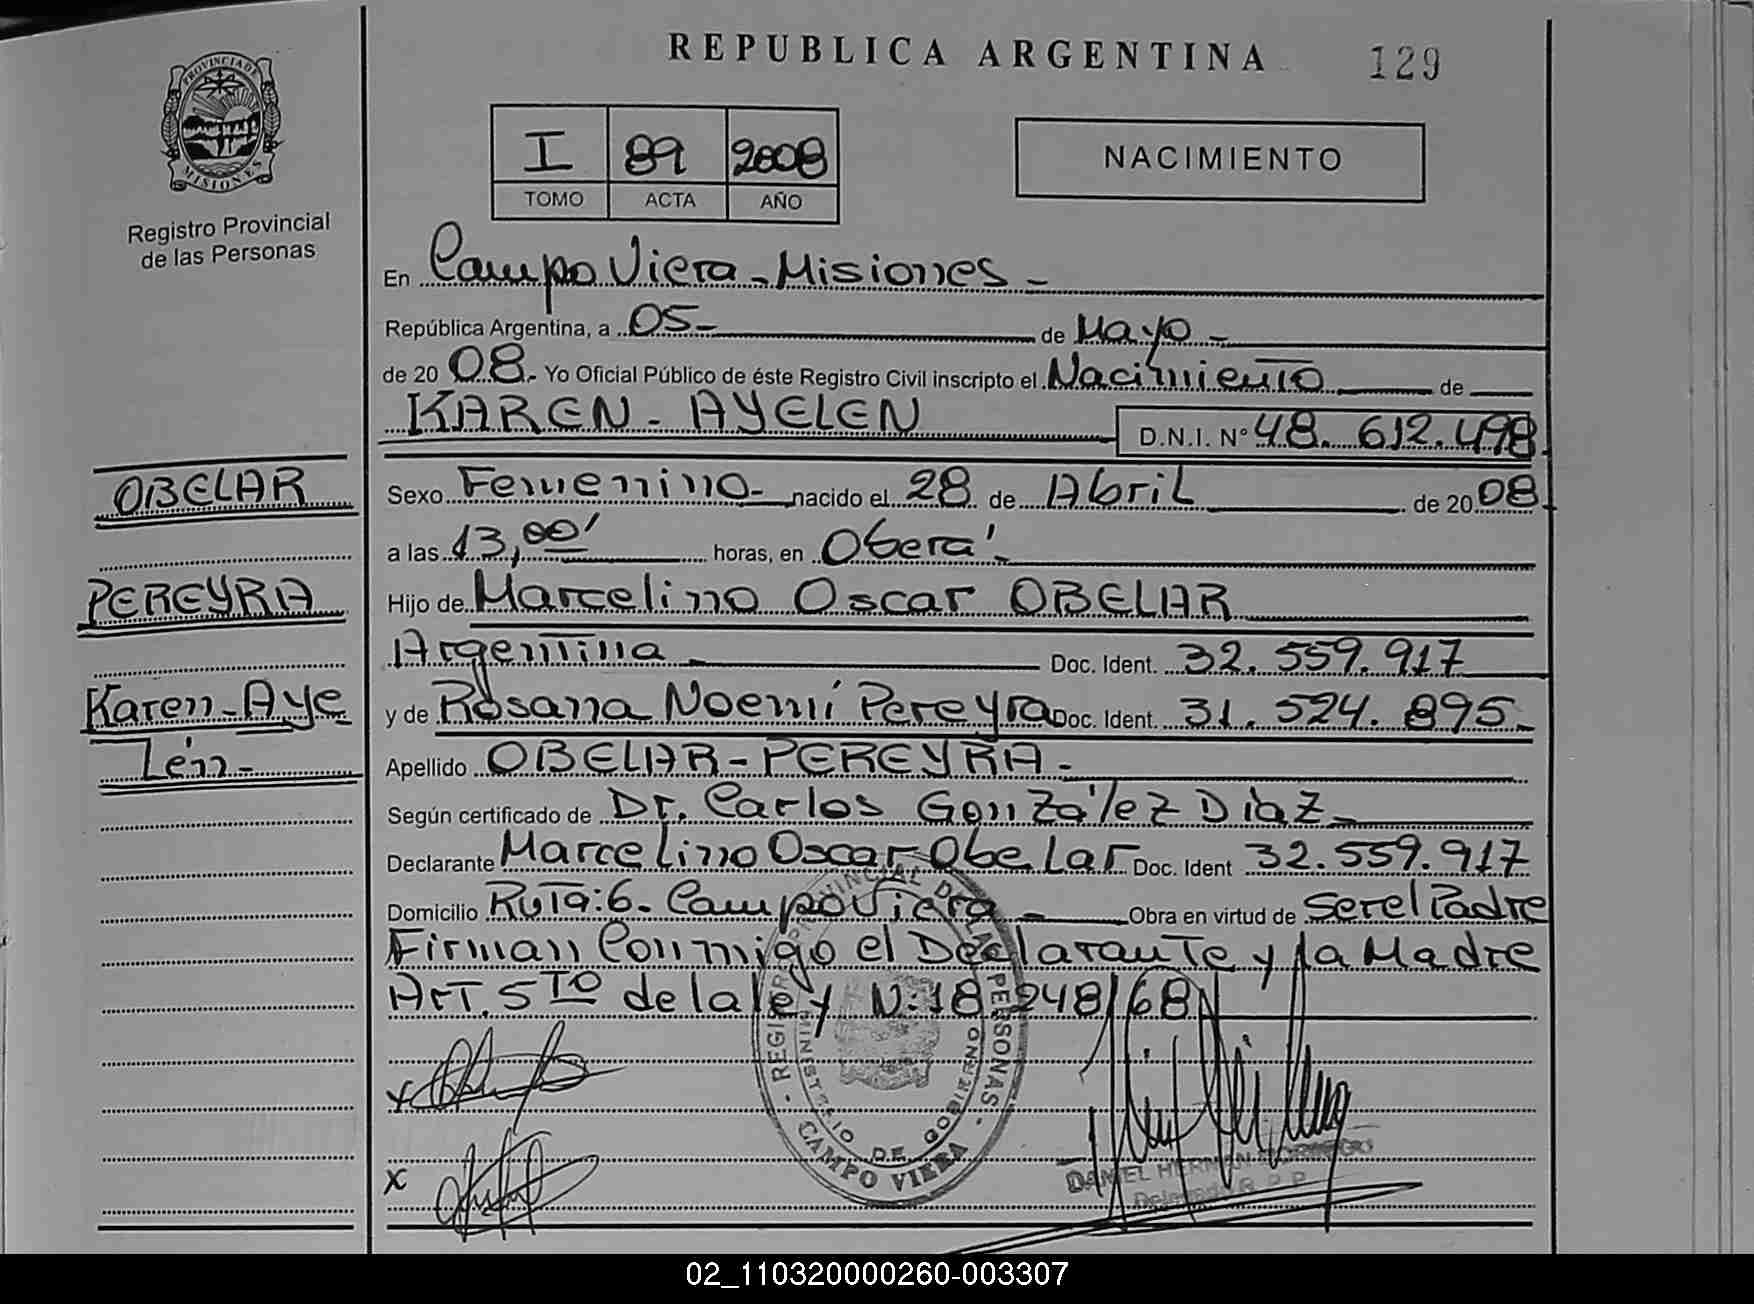 REPUBLICA ARGENTINA
129
PROVINCIA DE
MISIONES
Registro Provincial
de las Personas
I 89 2008
TOMO ACTA AÑO
NACIMIENTO
En Campo Viera - Misiones -
República Argentina, a 05 - de Mayo -
de 20 08 - Yo Oficial Público de éste Registro Civil inscripto el Nacimiento de
KAREN - AYELEN D.N.I. Nº 48. 612. 498
OBELAR
Sexo Femenino - nacido el 28 de Abril de 20 08
a las 13,00' horas, en Oberá -
PEREYRA
Hijo de Marcelino Oscar OBELAR
Argentina Doc. Ident. 32. 559. 917
Karen - Aye
lén -
y de Rosana Noemí Pereyra Doc. Ident. 31. 524. 895 -
Apellido OBELAR - PEREYRA -
Según certificado de Dr. Carlos González Díaz -
Declarante Marcelino Oscar Obelar Doc. Ident 32. 559. 917
Domicilio Ruta: 6 - Campo Viera - Obra en virtud de Ser el Padre
Firman Conmigo el Declarante y la Madre
Art. 5TO de la ley N: 18.248/68
REGISTRO PROVINCIAL DE LAS PERSONAS -
MINISTERIO DE GOBIERNO
- CAMPO VIERA
x
x
DANIEL HERNAN
Delegado R. P. P.
02_110320000260-003307